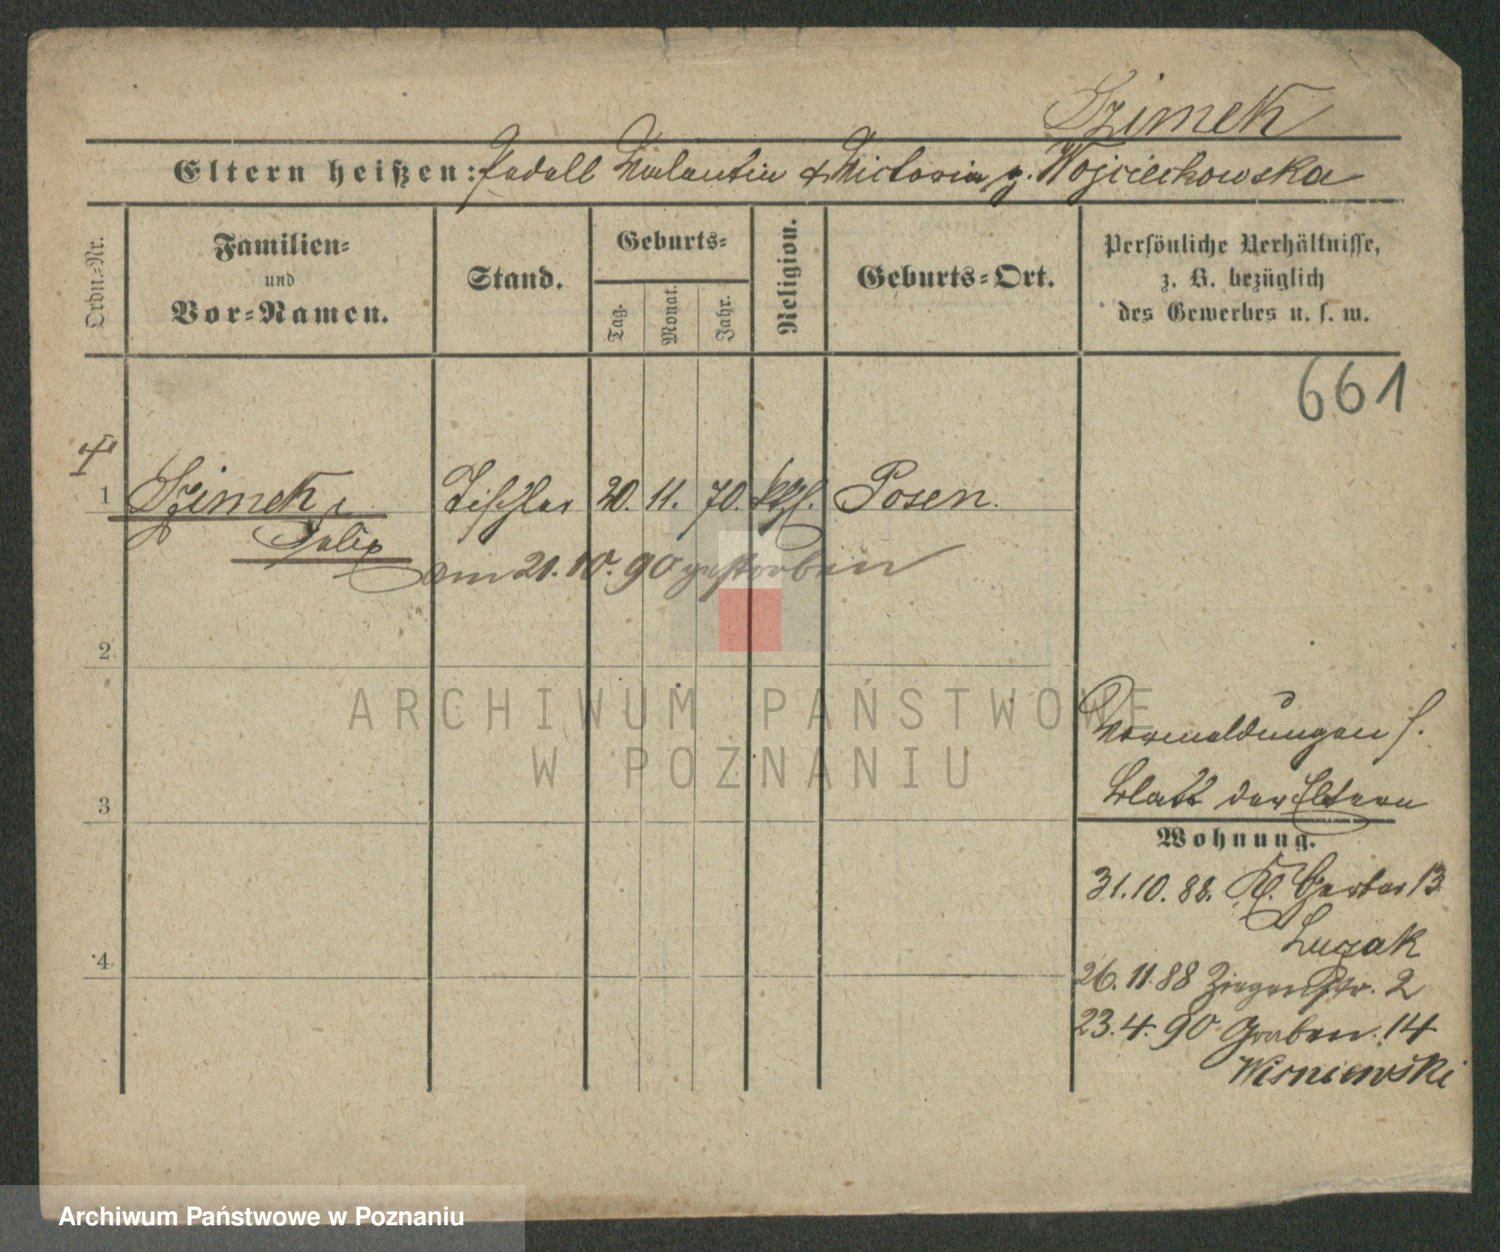 Szimek
Eltern heißen: Valentin & Victoria g. Wojciechowska
Ordn.-Nr.
Familien-
und
Vor-Namen.
Stand.
Geburts-
Tag.
Monat.
Jahr.
Religion.
Geburts-Ort.
Persönliche Verhältnisse,
z. B. bezüglich
des Gewerbes u. s. w.
661
1 Szimek, Tischler 20. 11. 70. kth. Posen.
Felix
am 21. 10. 90 gestorben
2
3
4
Vormeldungen s.
Blatt der Eltern
Wohnung.
31. 10. 88. Kl. Gerber 13
Luczak
26. 11. 88 Ziegenstr. 2
23. 4. 90 Graben 14
Wisniewski
ARCHIWUM PAŃSTWOWE
W POZNANIU
Archiwum Państwowe w Poznaniu